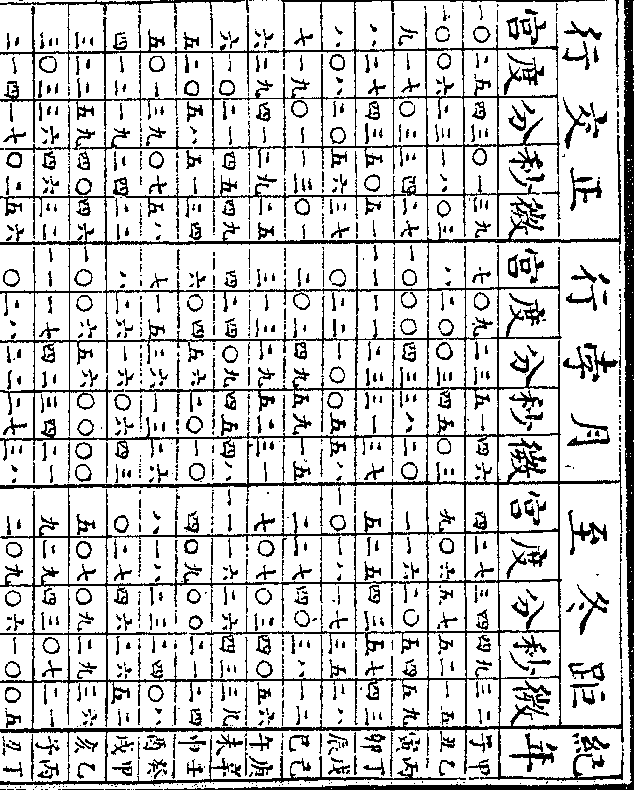 行交正 行孛月 至冬距 紀
宮度分秒微 宮度分秒微 宮度分秒微 年
一〇 二五 四三 〇一 三九 七 〇九 二三 五一 四六 四 二七 三四 四九 三二 子甲
一〇 〇六 二三 一八 〇三 八 二〇 〇三 四五 〇三 九 〇六 五七 五二 一五 丑乙
九 一七 〇三 三四 二七 一〇 〇〇 四三 三八 二〇 一 一六 二〇 五四 五九 寅丙
八 二七 四三 五〇 五一 一一 一一 二三 三一 三七 五 二五 四三 五七 四三 卯丁
八 〇八 二〇 五六 三七 〇 二二 一〇 〇五 五八 一〇 一八 一七 三五 二八 辰戊
七 一九 〇一 一三 〇一 二 〇二 四九 五九 一五 二 二七 四〇 三八 一二 巳己
六 二九 四一 二九 二五 三 一三 二九 五二 三一 七 〇七 〇三 四〇 五六 午庚
六 一〇 二一 四五 四九 四 二四 〇九 四五 四八 一一 一六 二六 四三 三九 未辛
五 二〇 五八 五一 三四 六 〇四 五六 二〇 一〇 四 〇九 〇〇 二一 二四 申壬
五 〇一 三九 〇七 五八 七 一五 三六 一三 二六 八 一八 二三 二四 〇八 酉癸
四 一二 一九 二四 二二 八 二六 一六 〇六 四三 〇 二七 四六 二六 五二 戌甲
三 二二 五九 四〇 四六 一〇 〇六 五六 〇〇 〇〇 五 〇七 〇九 二九 三六 亥乙
三 〇三 三六 四六 三二 一一 一七 四二 三四 二一 九 二九 四三 〇七 二一 子丙
二 一四 一七 〇二 五六 〇 二八 二二 二七 三八 二 〇九 〇六 一〇 〇五 丑丁